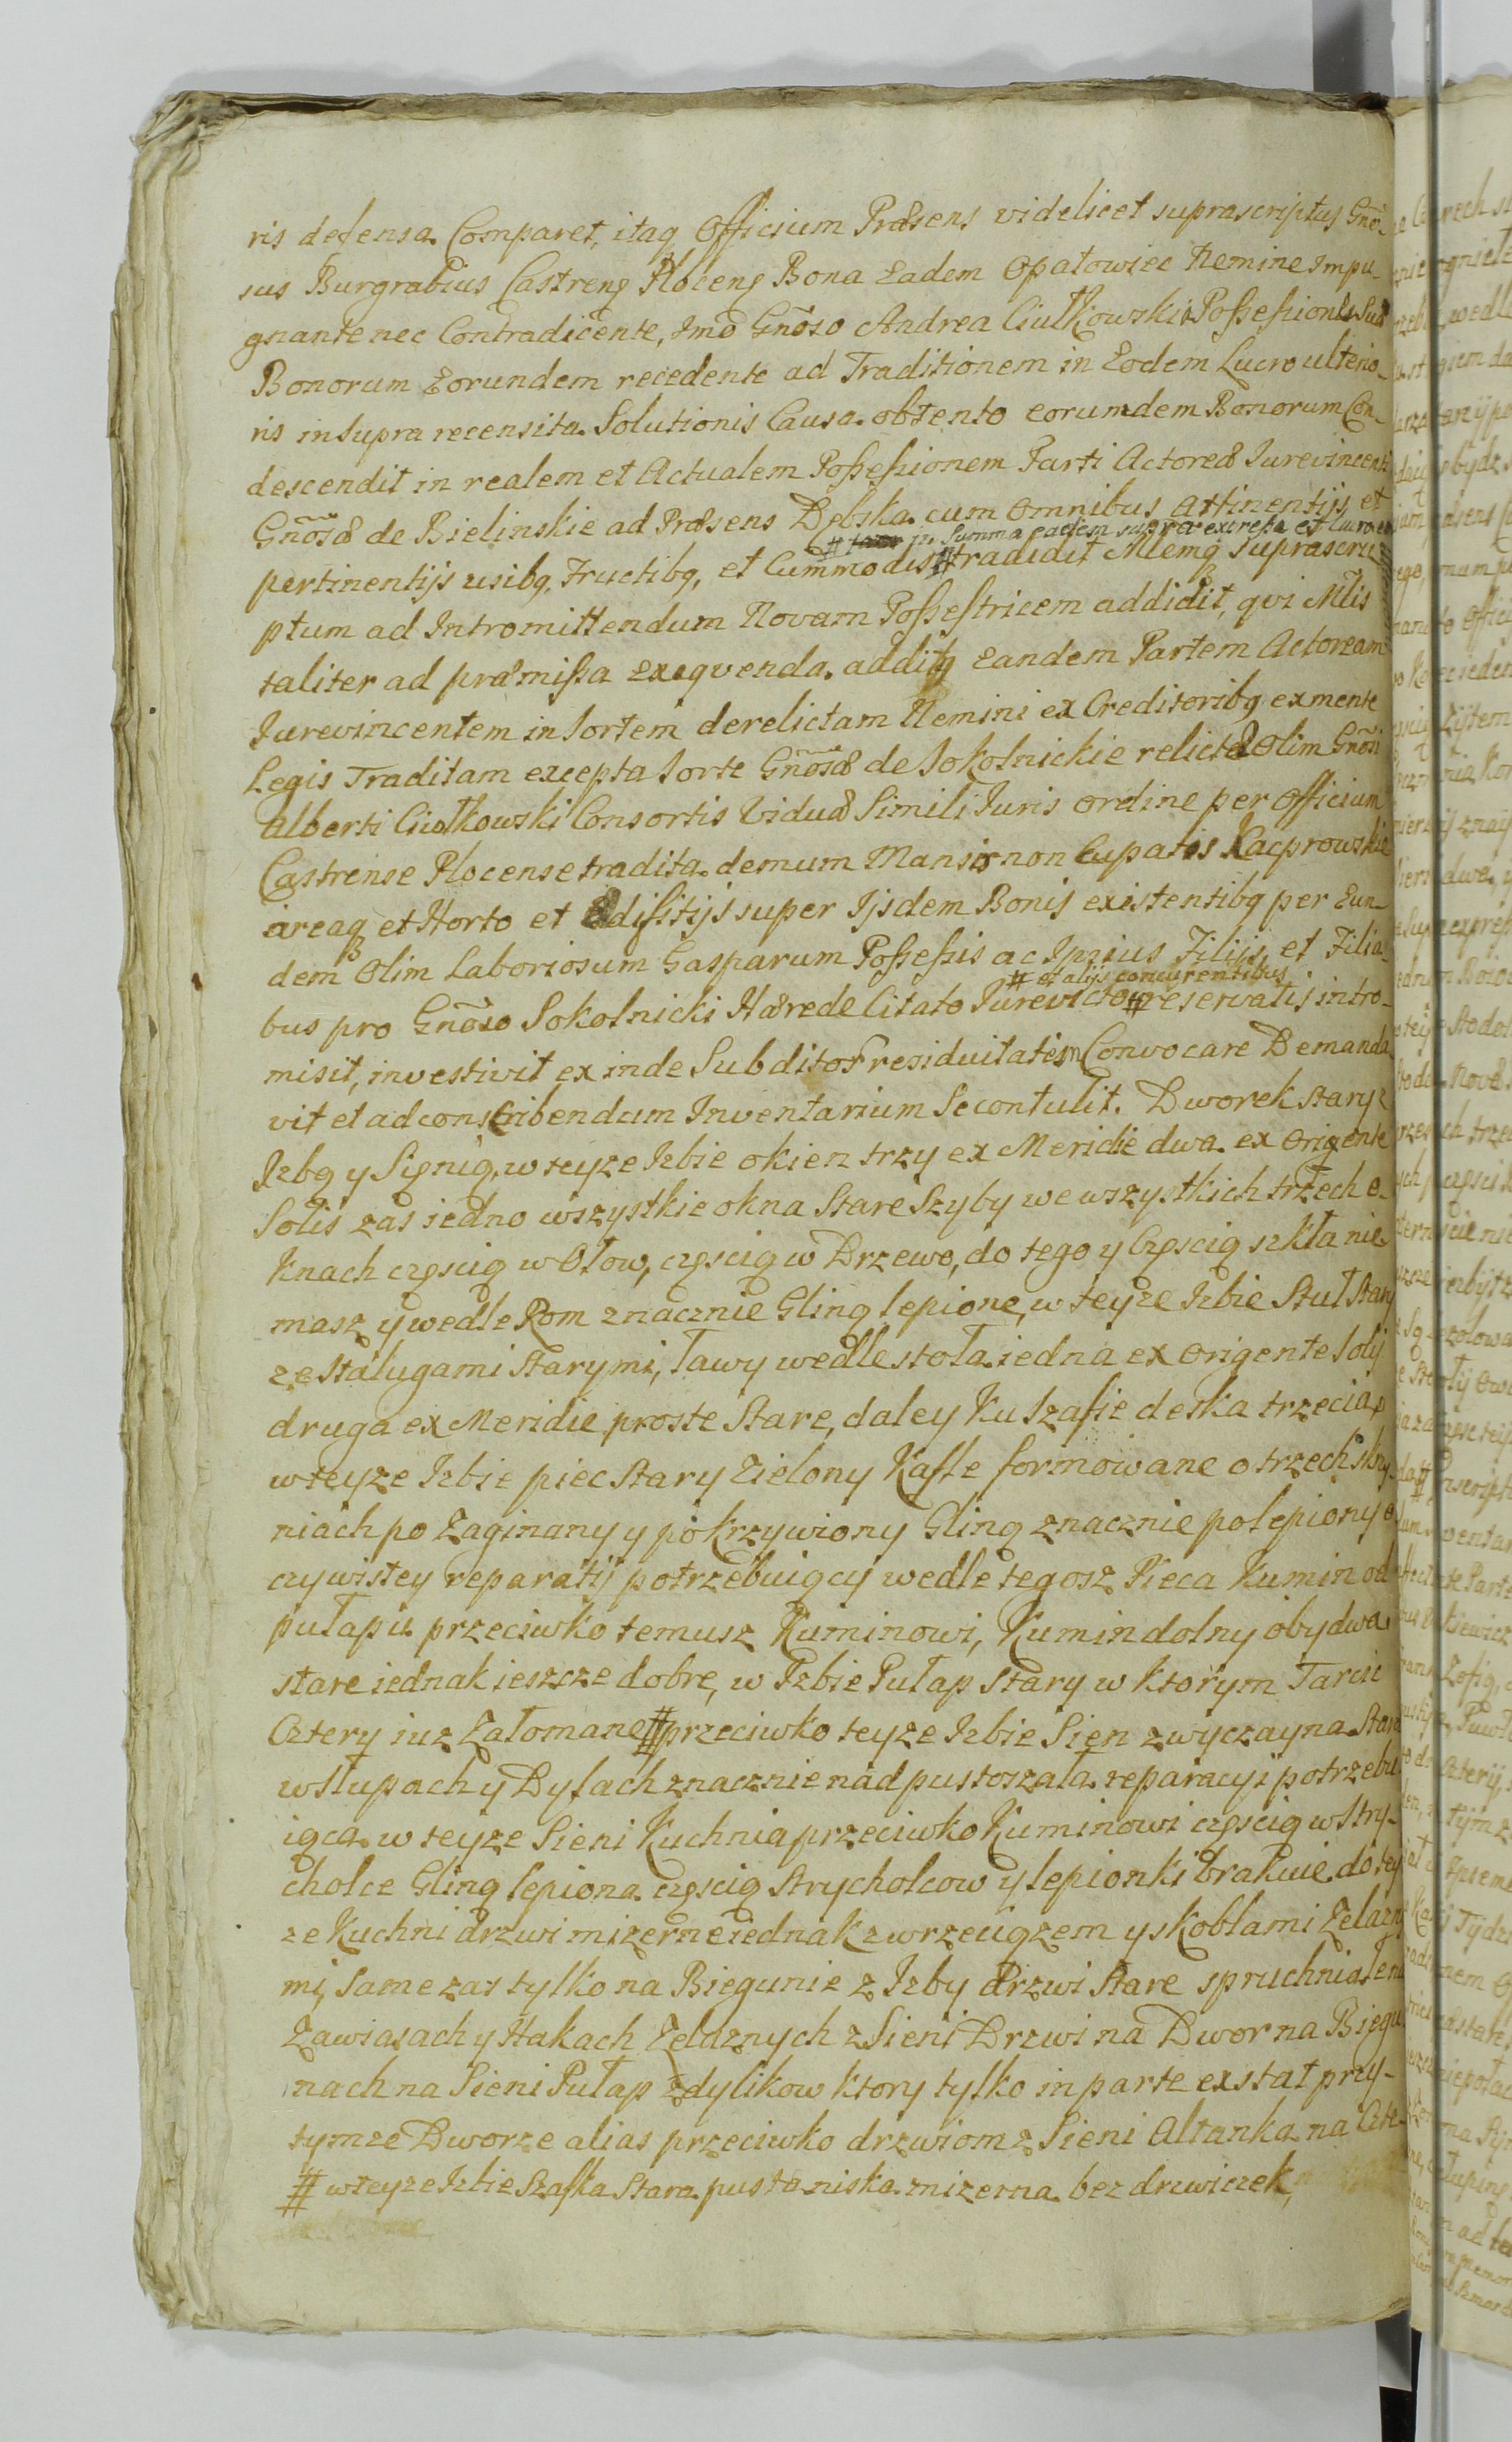 ris defensa. Comparet, itaq Officium Præsens videlicet suprascriptus Gnõ-
sus Burgrabius Castreng Ploceng Bona Eadem Opatowiec Nemine Impu-
gnante nec Contradicente, Imo Gnõso Andrea Ciułkowski Possessione Sua
Bonorum Eorundem recedente ad Traditionem in Eodem Lucro ulterio-
ris in supra recensita. Solutionis Causa. obtento eorumdem Bonorum Con-
descendit in realem et Actualem Possessionem Parti Actoreæ Iurevincenti
Gnõsæ de Bielinskie ad Præsens Dębska. cum omnibus attinentijs et
# in Summa eadem supra expressa et lucro
pertinentijs usibq, Fructibq, et Cummodis # tradidit Mlemq suprascri-
ptum ad Intromittendum Novam Possestricem addidit, qvi Mlis
taliter ad præmissa Exeqvenda. additq Eandem Partem Actoream
Iurevincentem in Sortem derelictam Nemini ex Creditoribq ex mente
Legis Traditam excepta Sorte Gnõsæ de Sokolnickie relictæ Olim Gnõsi
Alberti Ciułkowski Consortis Viduæ Simili Iuris ordine per Officium
Castrense Plocense tradita. demum Manso non Cupatis Kacprowskie
áreaq et Horto et Ædifitijs super Ijsdem Bonis existentibq per Eun-
dem Olim Laboriosum Gasparum Possessis ac Ipsius Filijs, et Filia-
# et alijs concurentibus
bus pro Gnõso Sokolnicki Hærede Citato Iurevicto # reservatis intro-
misit, investivit ex inde Subditos residuitatem Convocare Demanda
vit et ad conscribendum Inventarium Se contulit. Dworek stary z
Izbą y Sienią, w teyze Izbie okien trzy ex Meridie dwa. ex Origente
Solis zas iedno wszystkie okna Stare Szyby we wszystkich trzech o-
knach częscią w Ołow, częscią w Drzewo, do tego y Częscią szkła nie-
masz y wedle Rom znacznie Gliną lepione, w teyze Izbie Stuł Stary
ze Stalugami Starymi, Ławy wedle stoła. iedna ex Origente Solis
druga ex Meridie proste Stare, daley Ku Szafie deska trzecia,
w teyze Izbie piec Stary Zielony Kafle formowane o trzech skrzy-
niach po Zaginany y pokrzywiony Gliną znacznie polepiony o-
czywistey reparatij potrzebuiący wedle tegosz Pieca Kumin od
pułapu przeciwko temusz Kuminowi, Kumin dolny obydwa
stare iednak ieszcze dobre, w Izbie Pułap Stary w ktorym Tarcic
Cztery iuz Załomane # przeciwko teyze Izbie Sien zwyczayna. Stara
w Słupach y Dylach znacznie nad pustoszała. reparacyi potrzebu-
iąca. w teyze Sieni Kuchnia przeciwko Kuminowi częscią w Stry-
cholce Gliną lepiona. częscią Strycholcow y lepionki brakuie. do tey
ze Kuchni drzwi mizerne iednak z wrzeciązem y skoblami Zelazny
mi, Same zas tylko na Biegunie z Izby Drzwi Stare spruchniałe na
Zawiasach y Hakach Zelaznych z Sieni Drzwi na Dwor na Biegu
nach na Sieni Pułap z dylikow ktory tylko in parte exstat przy-
tymze Dworze alias przeciwko drzwiom z Sieni Altanka. na Czte-
# w teyze Izbie Szafka Stara. pusta niska. mizerna. bez drzwiczek,